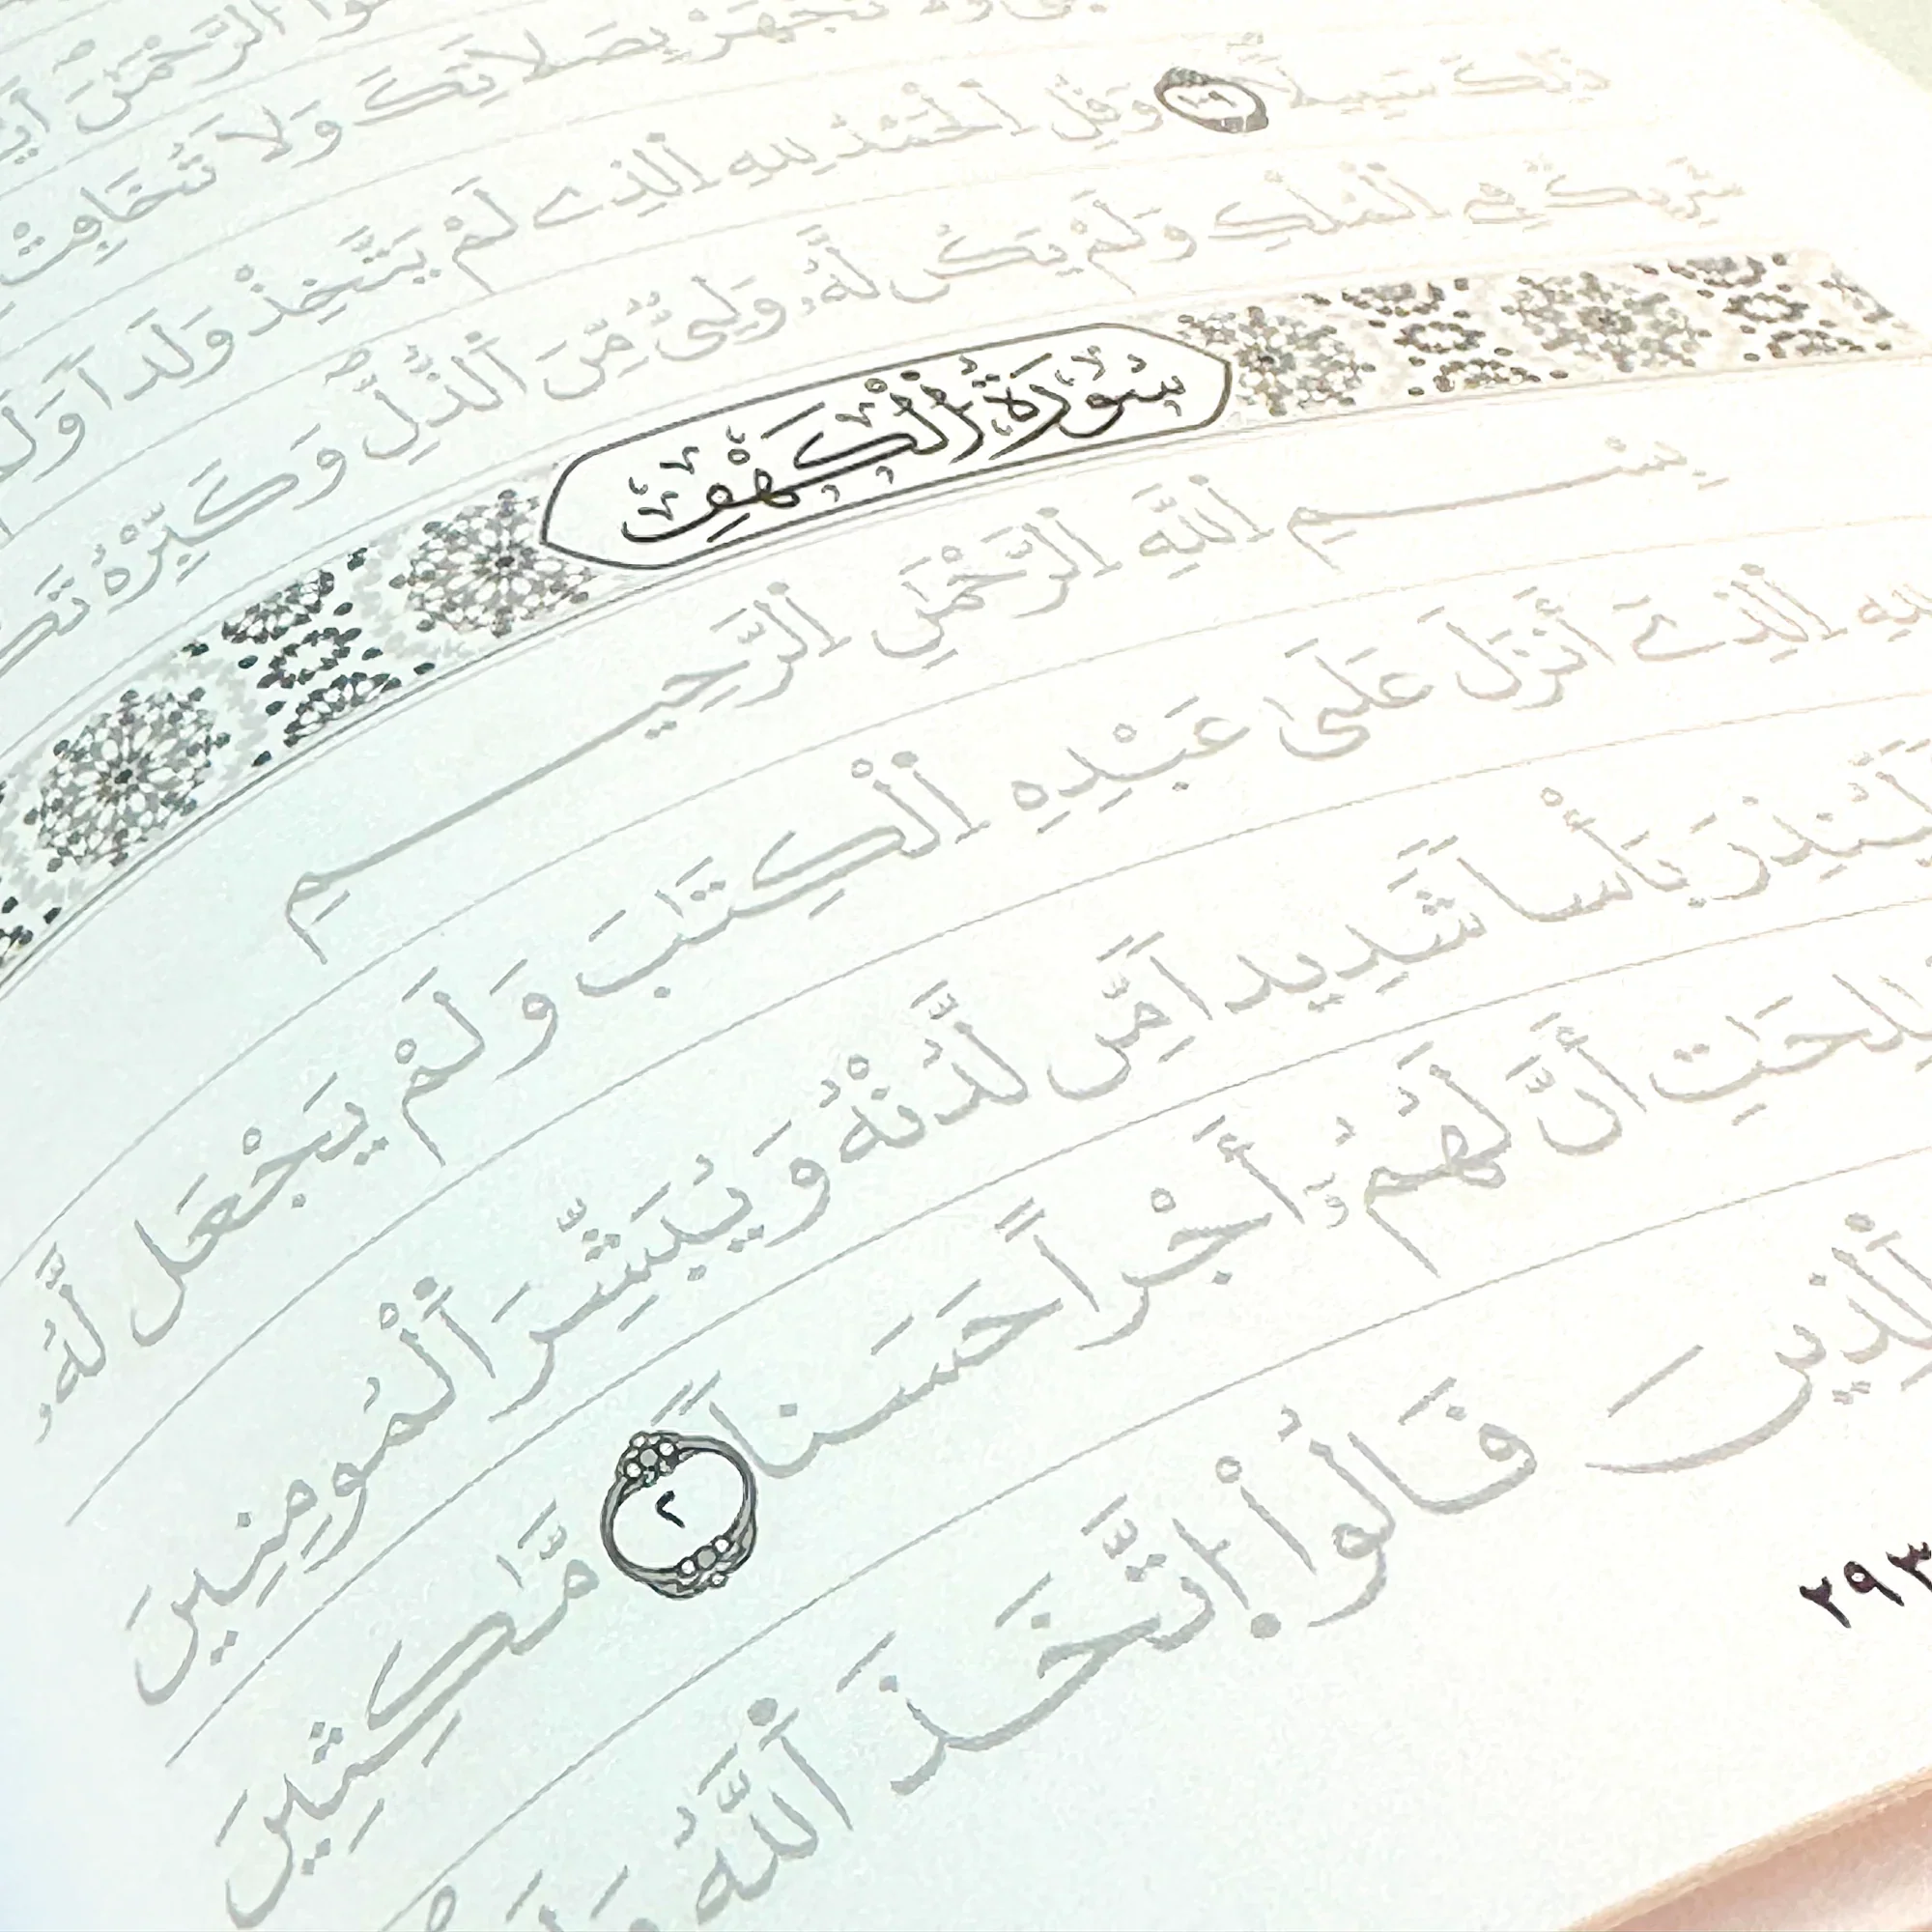 اَ۬لرَّحْمَٰنَ
تَجْهَرْ بِصَلَاتِكَ وَلَا تُخَافِتْ
ذَٰلِكَ سَبِيلاٗ ١٠٩ وَقُلِ اِ۬لْحَمْدُ لِلهِ اِ۬لذِے لَمْ يَتَّخِذْ وَلَداٗ وَلَمْ
شَرِيكٞ فِے اِ۬لْمُلْكِ وَلَمْ يَكُن لَّهُۥ وَلِيّٞ مِّنَ اَ۬لذُّلِّ وَكَبِّرْهُ
سُورَةُ اُ۬لْكَهْفِ
بِسْمِ اِ۬للَّهِ اِ۬لرَّحْمَٰنِ اِ۬لرَّحِيمِ
لِلهِ اِ۬لذِےٓ أَنزَلَ عَلَىٰ عَبْدِهِ اِ۬لْكِتَٰبَ وَلَمْ يَجْعَل لَّهُۥ
لِّيُنذِرَ بَأْساٗ شَدِيداٗ مِّن لَّدُنْهُ وَيُبَشِّرَ اَ۬لْمُومِنِينَ
أَنَّ لَهُمُۥٓ أَجْراً حَسَناٗ ٢ مَّٰكِثِينَ
اَ۬لذِينَ قَالُواْ اُ۪تَّخَذَ اَ۬للَّهُ
٢٩٣